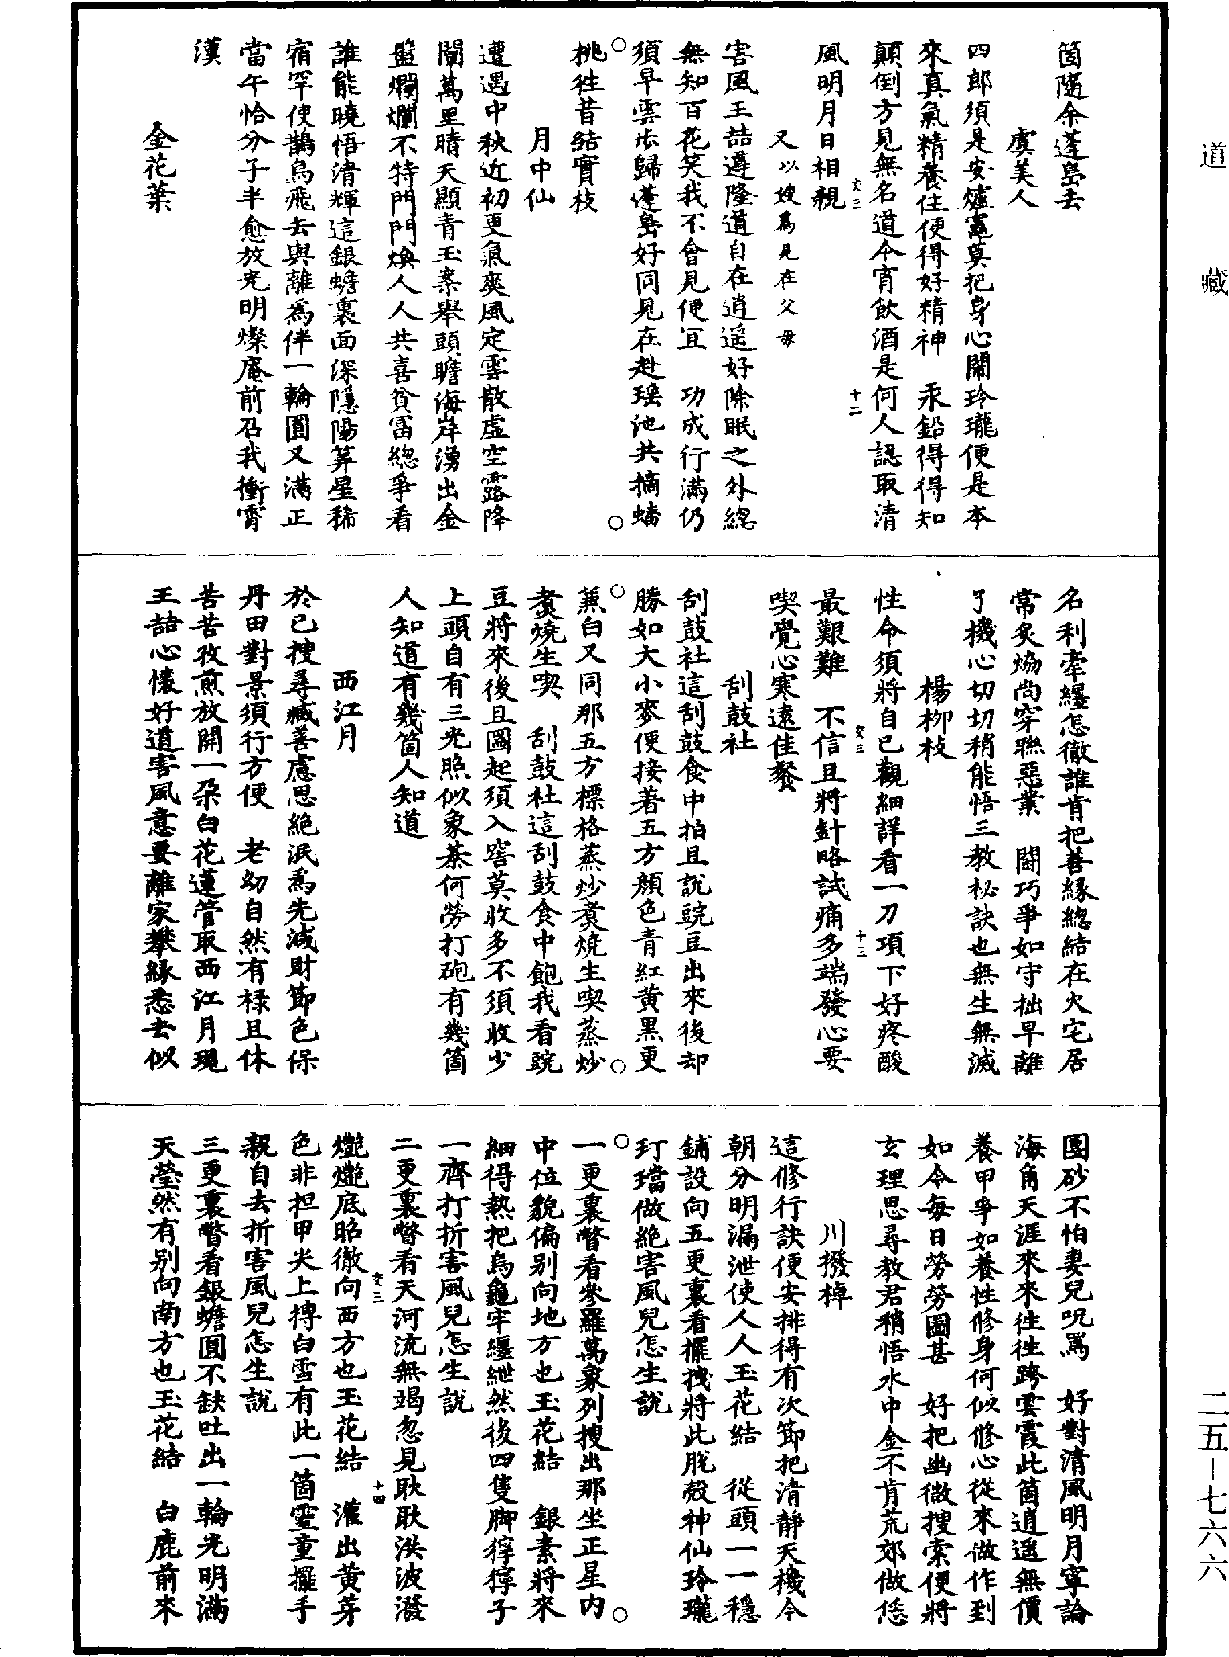 道藏
箇隨余蓬島去
虞美人
四郎須是安爐竈莫把身心鬧玲瓏便是本
來真氣精養住便得好精神　汞鉛得得知
顛倒方見無名道今宵飲酒是何人認取清
風明月日相親
又以嫂爲見在父母
害風王喆遵隆道自在逍遥好除眠之外總
無知百花笑我不會見便宜　功成行滿仍
須早雲步歸蓬島好同見在赴瑶池共摘蟠
桃往昔結實枝
月中仙
遭遇中秋近初更氣爽風定雲散虚空露降
閬萬里晴天顯青玉案舉頭瞻海岸湧出金
盤爛爛不特門門煥人人共喜貧富總爭看
誰能曉悟清輝這銀蟾裏面深隱陽筭星稀
宿罕使鵲烏飛去與離爲伴一輪圓又滿正
當午恰分子半愈放光明燦庵前召我衝霄
漢
金花葉
名利牽纏怎徹誰肯把善緣總結在火宅居
常炙煿尚穿聯惡業　鬭巧爭如守拙早離
了機心切切稍能悟三教祕訣也無生無滅
楊柳枝
性命須將自已觀細詳看一刀項下好疼酸
最艱難　不信且將針略試痛多端發心要
喫覺心寒遠佳餐
刮鼓社
刮鼓社這刮鼓食中拍且說豌豆出來後却
勝如大小麥便接著五方顔色青紅黃黑更
蒸白又同那五方標格蒸炒煮燒生喫蒸炒
煮燒生喫　刮鼓社這刮鼓食中飽我看豌
豆將來後且圖起須入窖莫收多不須收少
上頭自有三光照似象棊何勞打砲有幾箇
人知道有幾箇人知道
西江月
於已搜尋臧善慮思絕泯爲先減財節色保
丹田對景須行方便　老幼自然有祿且休
苦苦孜煎放開一朵白花蓮管取西江月現
王喆心懷好道害風意要離家攀緣悉去似
團砂不怕妻兒咒罵　好對清風明月寧論
海角天涯來來往往跨雲霞此箇逍遥無價
養甲爭如養性修身何似修心從來做作到
如今每日勞勞圖甚　好把幽微搜索便將
玄理思尋教君稍悟水中金不肯荒郊做恁
川撥棹
這修行訣便安排得有次節把清靜天機今
朝分明漏泄使人人玉花結　從頭一一穩
鋪設向五更裏看擺拽將此脱殼神仙玲瓏
玎璫做絕害風兒怎生說
一更裏瞥看參羅萬象列搜出那坐正星内
中位貌偏别向地方也玉花結　銀素將來
細得熱把烏龜牢纏紲然後四隻脚獰獰子
一齊打折害風兒怎生說
二更裏瞥看天河流無竭忽見耿耿洪波潑
灎灎底昭徹向西方也玉花結　灌出黃芽
色非担甲尖上摶白雪有此一箇靈童擺手
親自去折害風兒怎生說
三更裏瞥看銀蟾圓不缺吐出一輪光明滿
天瑩然有别向南方也玉花結　白鹿前來
二五—七六六